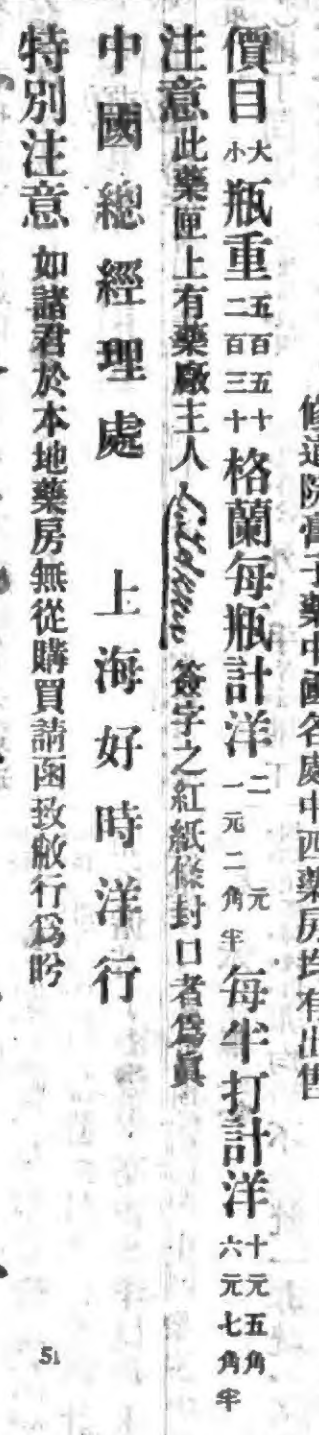 修道院膏子藥中國各處中西藥房均有出售
價目 大小瓶重 五百五十二百三十格蘭每瓶計洋 二元一元二角半 每半打計洋 十元五角六元七角半
注意此藥匣上有藥廠主人 簽字之紅紙條封口者爲眞
中國總經理處 上海好時洋行
特別注意 如諸君於本地藥房無從購買請函致敝行爲盼
51